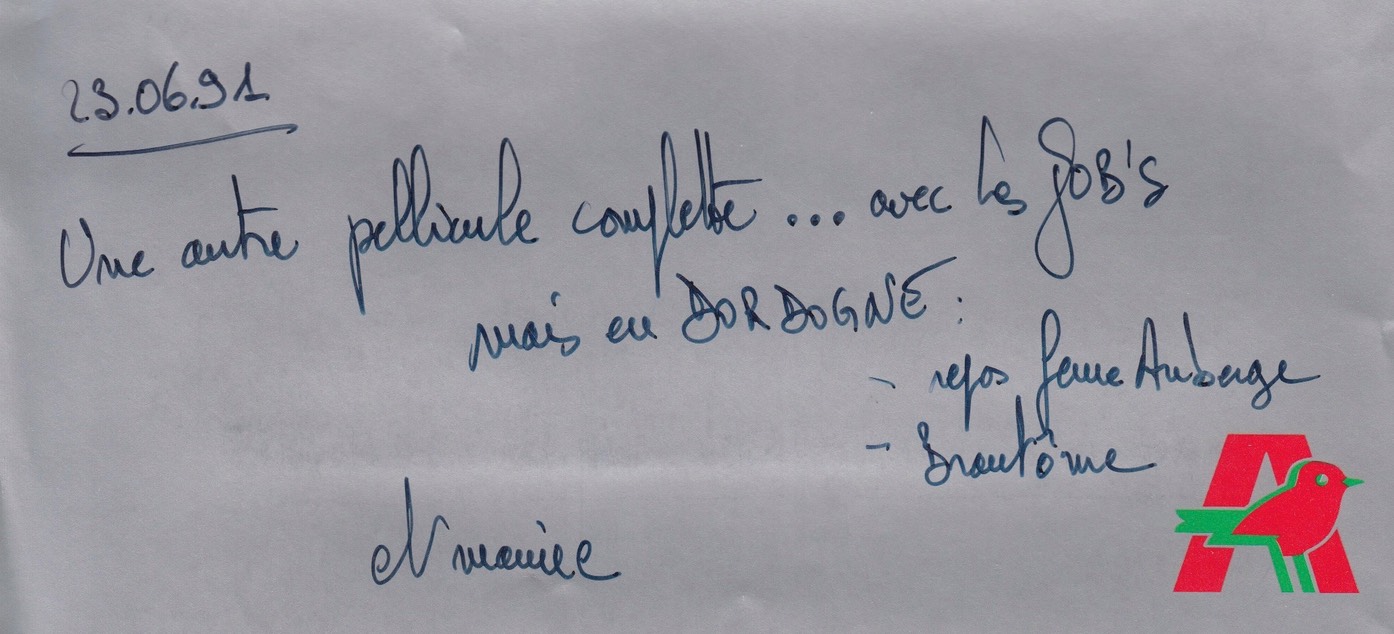 23.06.91
Une autre pellicule complette ... avec les JOB's
mais en DORDOGNE :
- repos ferme Auberge
- Brantôme
A